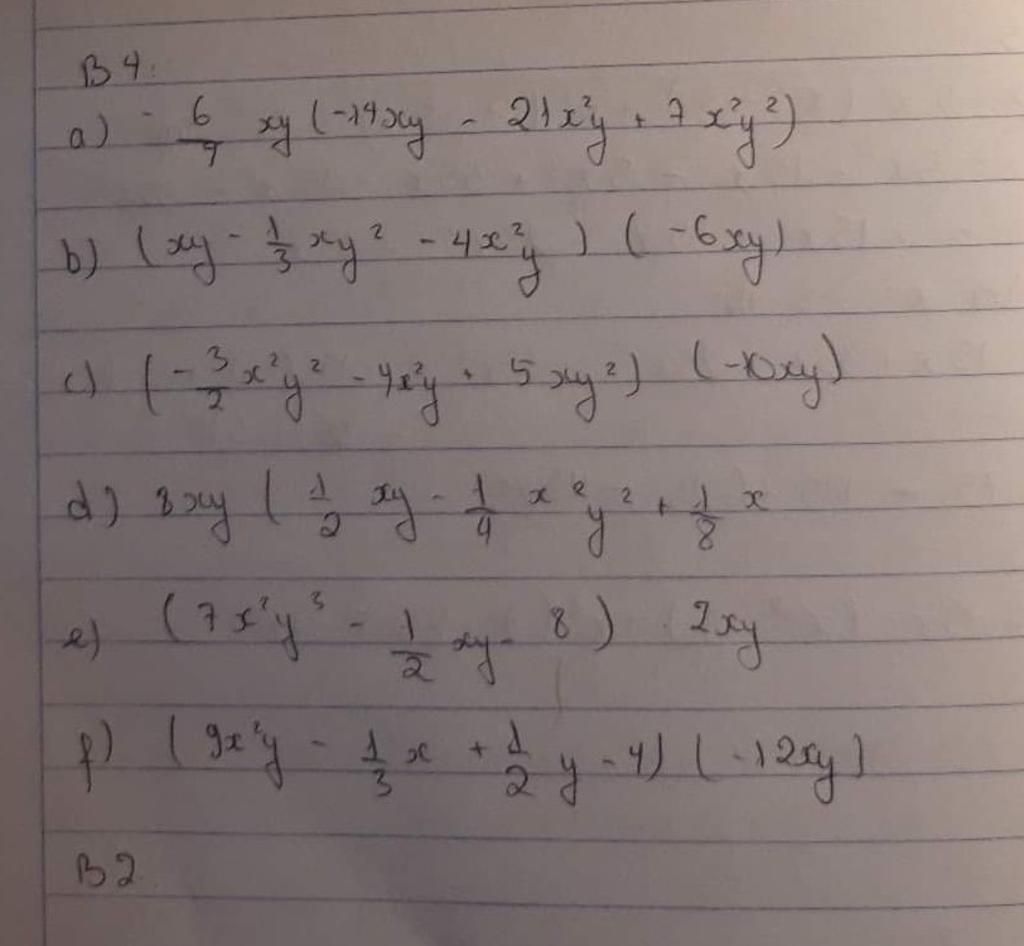 B 4.
a) - 6/7 xy (-14xy - 21x²y + 7x²y²)
b) (xy - 1/3 xy² - 4x²y) (-6xy)
c) (-3/2 x²y² - 4x²y + 5xy²) (-10xy)
d) 8xy (1/2 xy - 1/4 x²y² + 1/8 x
e) (7x²y³ - 1/2 xy - 8) . 2xy
f) (9x²y - 1/3 x + 1/2 y - 4) (-12xy)
B2